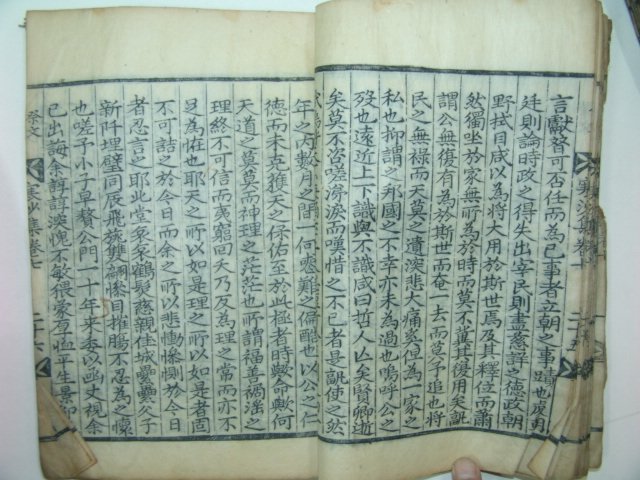 言獻替可否任而爲己事者立朝之事蹟也處朝
廷則論時政之得失出宰民則盡慈詳之德政朝
野拭目咸以爲將大用於斯世焉及其釋位而肅
然獨坐於家無所爲於時而莫不冀其復用矣詎
謂公無復有爲於斯世而奄一去而莫予追也將
民之無祿而天莫之遺淡悲大痛奚但爲一家之
私也抑謂之邦國之不幸亦未爲過也嗚呼公之
歿也遠近上下識與不識咸曰哲人亾矣賢卿逝
矣莫不咨嗟涕淚而嘆惜之不已者是誰使之然
年之內數月之間一何悲難之偏酷也以公之仁
德而未克獲天之保佑至於此極者時歟命歟何
天道之莫莫而神理之茫茫也所謂福善禍淫之
理終不可信而夷窮回夭乃反爲理之常而亦不
足爲恠也耶天之所以如是理之所以如是者固
不可詰之於今日而余之所以悲慟慘惻於今日
者忍言之耶此堂哀哀鶴髮慈親住城纍纍父子
新阡埋璧同辰飛旐雙翩慘目摧腸不忍爲之懷
也嗟予小子早贅公門一十年來委以函丈視余
己出誨余諄諄淡愧不敏偎蒙
平生景仰
祭文
集卷七
二十六